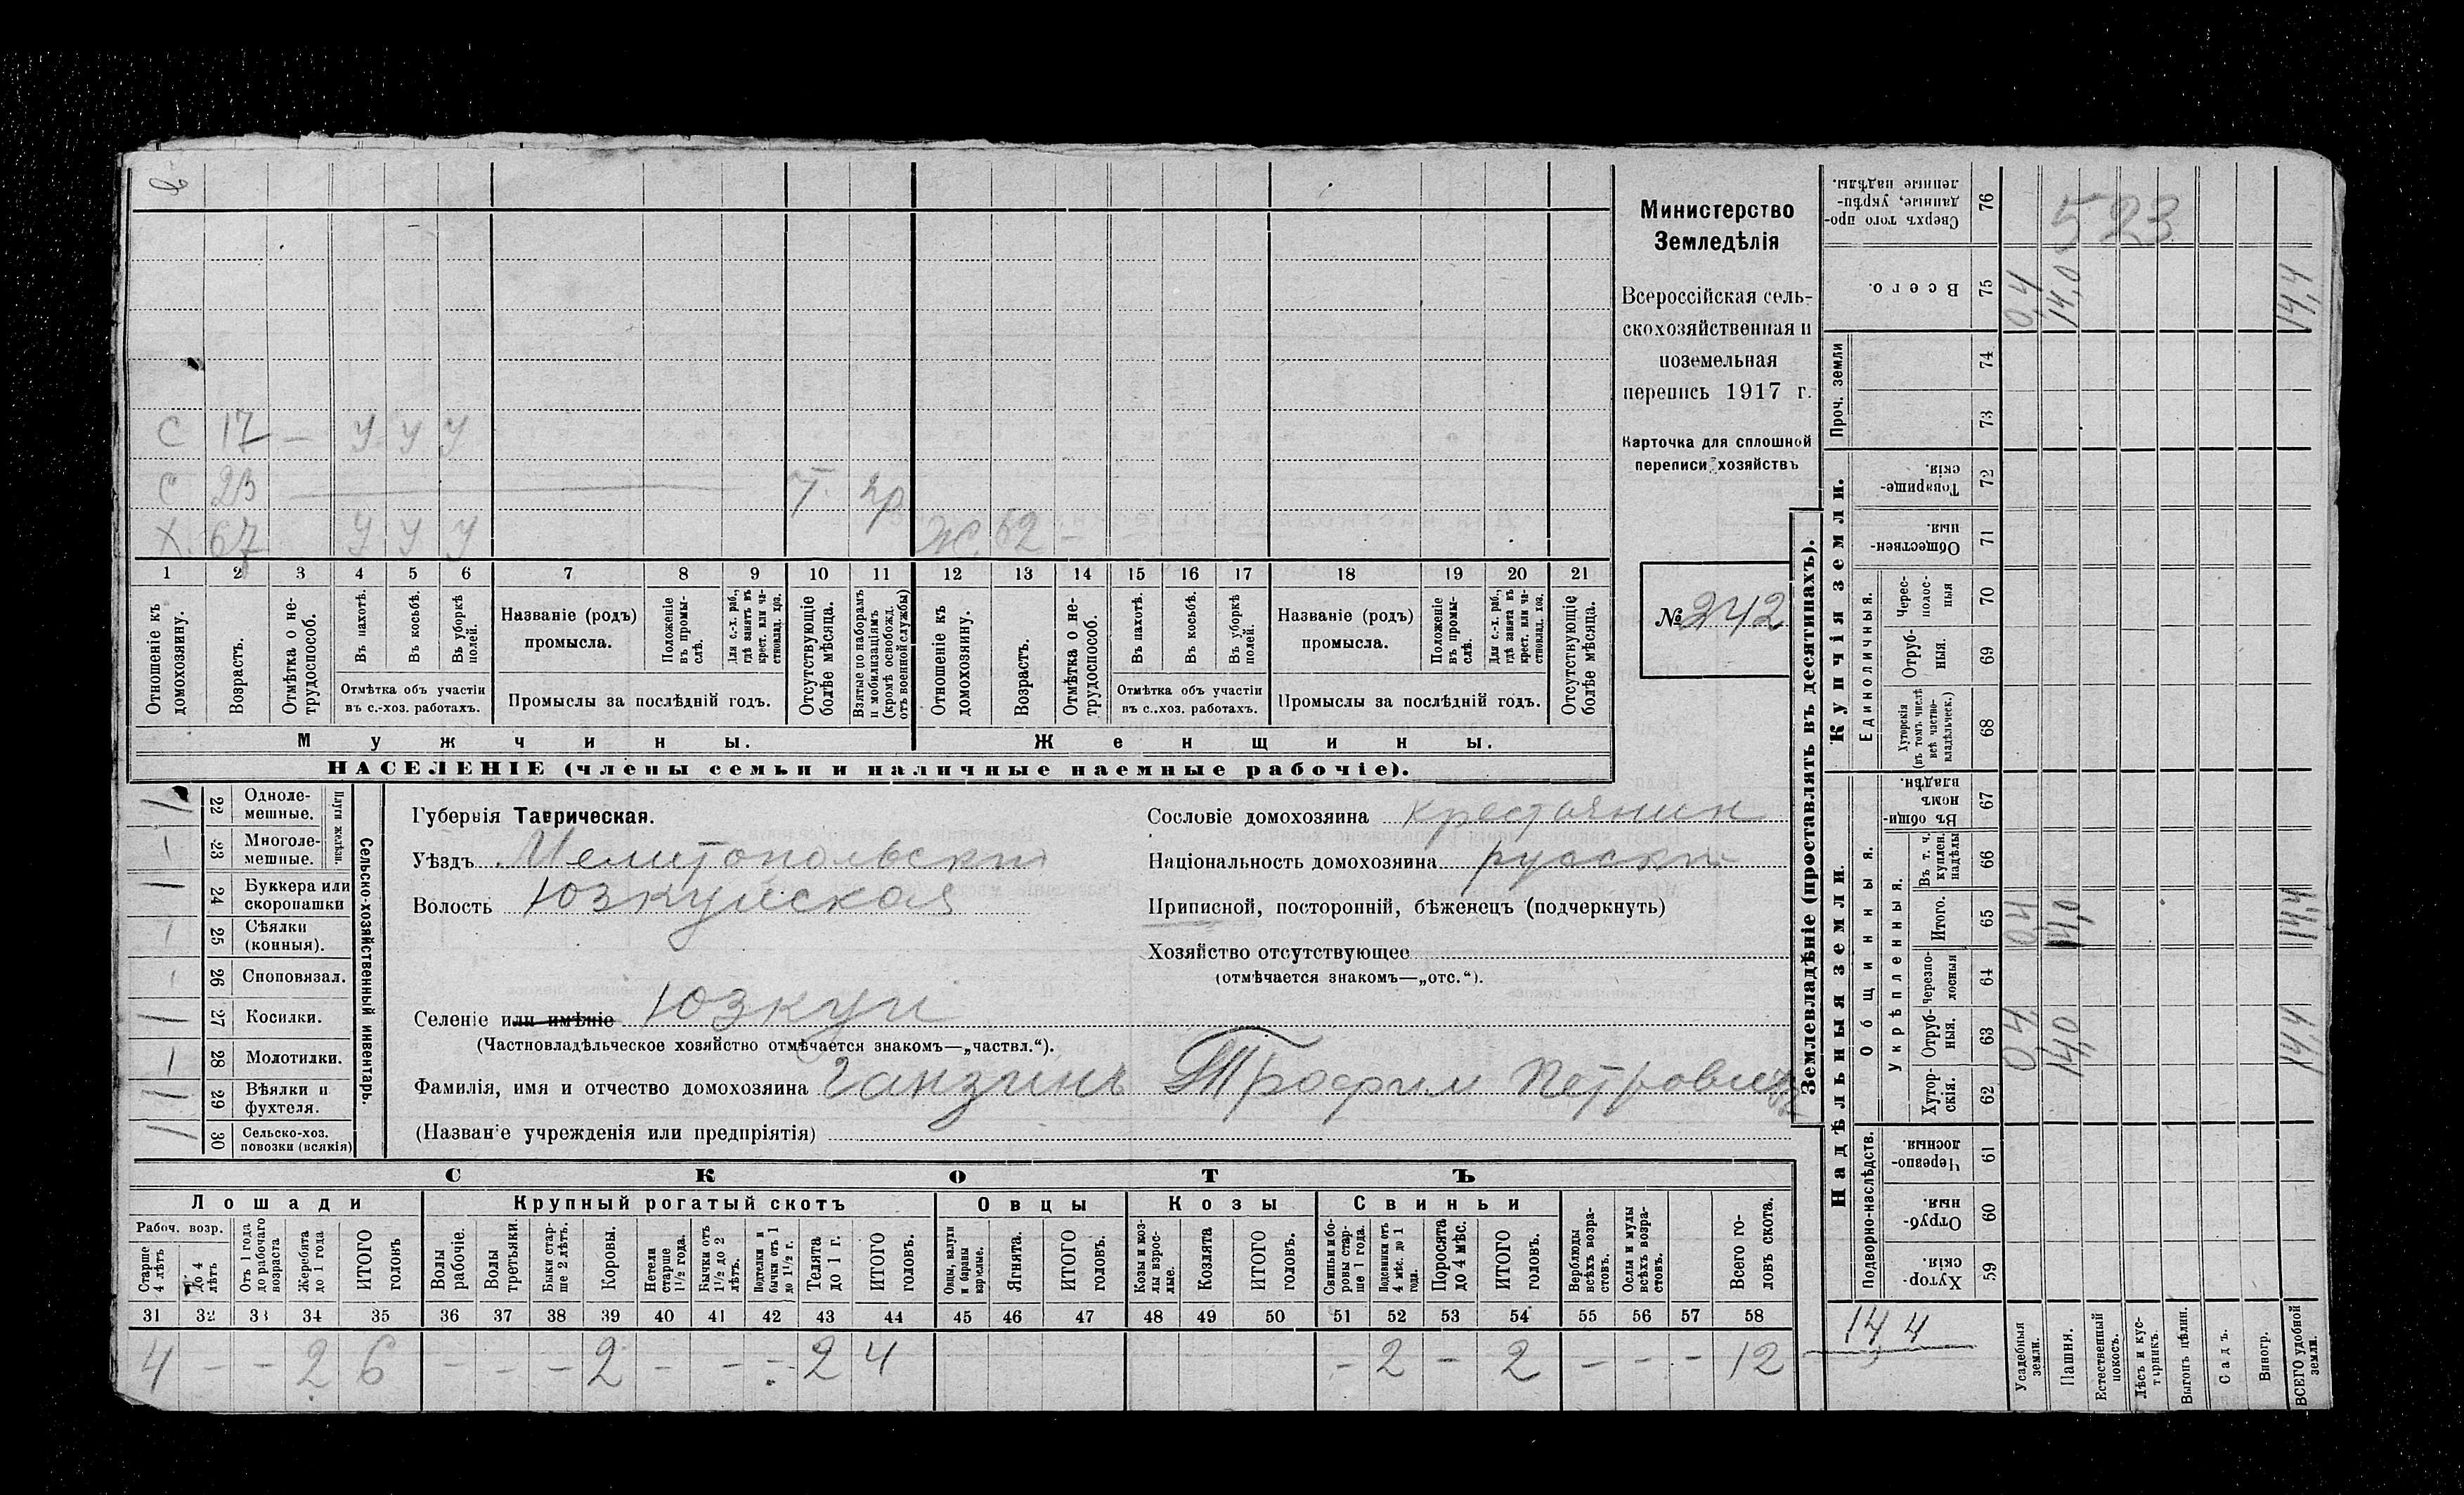 523
С 17 – У У У
С 23 Т.
Х. 67 У У У Ж. 52 –
1 2 3 4 5 6 7 8 9 10 11 12 13 14 15 16 17 18 19 20 21
Отношеніе къ домохозяину.
Возрастъ.
Отмѣтка о нетрудоспособ.
Въ пахотѣ.
Въ косьбѣ.
Въ уборкѣ полей.
Отмѣтка объ участіи
въ с.-хоз. работахъ.
Названіе (родъ)
промысла.
Положеніе въ промыслѣ.
Для с.-х. раб., гдѣ занятъ въ крест. или частновлад. хоз.
Промыслы за послѣдній годъ.
Отсутствующіе болѣе мѣсяца.
Взятые по наборамъ и мобилизаціямъ (кромѣ освобожд. отъ военной службы)
Отношеніе къ домохозяину.
Возрастъ.
Отмѣтка о нетрудоспособ.
Въ пахотѣ.
Въ косьбѣ.
Въ уборкѣ полей.
Отмѣтка объ участіи
въ с..хоз. работахъ.
Названіе (родъ)
промысла.
Положеніе въ промыслѣ.
Для с.-х. раб., гдѣ занята въ крест. или частновлад. хоз.
Промыслы за послѣдній годъ.
Отсутствующіе болѣе мѣсяца.
Мужчины.
Женщины.
НАСЕЛЕНІЕ (члены семьи и наличные наемные рабочіе).
Министерство
Земледѣлія
Всероссійская сель-
скохозяйственная и
поземельная
перепись 1917 г.
Карточка для сплошной
переписи хозяйствъ
№ 242
22 Одноле-
мешные.
23 Многоле-
мешные.
Плуги желѣзн.
24 Буккера или
скоропашки
25 Сѣялки
(конныя).
26 Сноповязал.
27 Косилки.
28 Молотилки.
29 Вѣялки и
фухтеля.
30 Сельско-хоз.
повозки (всякія)
Сельско-хозяйственный инвентарь.
Губернія Таврическая.
Уѣздъ Мелитопольскій
Волость Юзкуйская
Селеніе или имѣніе Юзкуи
(Частновладѣльческое хозяйство отмѣчается знакомъ—„частвл.“).
Фамилія, имя и отчество домохозяина Ганзинъ Трофим Петрович
(Названіе учрежденія или предпріятія)
Сословіе домохозяина крестьянин
Національность домохозяина русскій
Приписной, посторонній, бѣженецъ (подчеркнуть)
Хозяйство отсутствующее
(отмѣчается знакомъ—„отс.“).
СКОТЪ
Лошади Крупный рогатый скотъ Овцы Козы Свиньи
Рабоч. возр.
Старше 4 лѣтъ
До 4 лѣтъ
Отъ 1 года до рабочаго возраста
Жеребята до 1 года
ИТОГО головъ
Волы рабочіе.
Волы третьяки.
Быки старше 2 лѣтъ.
Коровы.
Нетели старше 1½ года.
Бычки отъ 1½ до 2 лѣтъ.
Подтелки и бычки отъ 1 до 1½ г.
Телята до 1 г.
ИТОГО головъ.
Овцы, валухи и бараны взрослые.
Ягнята.
ИТОГО головъ.
Козы и козлы взрослые.
Козлята
ИТОГО головъ.
Свиньи и боровы старше 1 года.
Подсвинки отъ 4 мѣс. до 1 года.
Поросята до 4 мѣс.
ИТОГО головъ.
Верблюды всѣхъ возрастовъ.
Ослы и мулы всѣхъ возрастовъ.
Всего головъ скота.
31 32 33 34 35 36 37 38 39 40 41 42 43 44 45 46 47 48 49 50 51 52 53 54 55 56 57 58
4 – – 2 6 – – – 2 – – – 2 4 – 2 – 2 – – – 12
Землевладѣніе (проставлять въ десятинахъ).
Надѣльныя земли.
Купчія земли.
Подворно-наслѣдств.
Общинныя.
Укрѣпленныя.
Единоличныя.
Проч. земли
59 Хуторскія.
60 Отрубныя.
61 Черезполосныя.
62 Хуторскія.
63 Отрубныя. 04 14,0 14,4
64 Черезполосныя
65 Итого. 04 14,0 14,4
66 Въ т. ч. куплен. надѣлы
67 Въ общинномъ владѣн.
68 Хуторскія (въ томъ числѣ всѣ частновладѣльческ.)
69 Отрубныя.
70 Чересполосныя
71 Общественныя.
72 Товарищескія.
73
74
75 Всего. 0,4 14,0 14,4
76 Сверхъ того проданные, укрѣпленные надѣлы.
14 4
Усадебныя земли.
Пашня.
Естественный покосъ.
Лѣсъ и кустарникъ.
Выгонъ цѣлин.
Садъ.
Виногр.
ВСЕГО удобной земли.